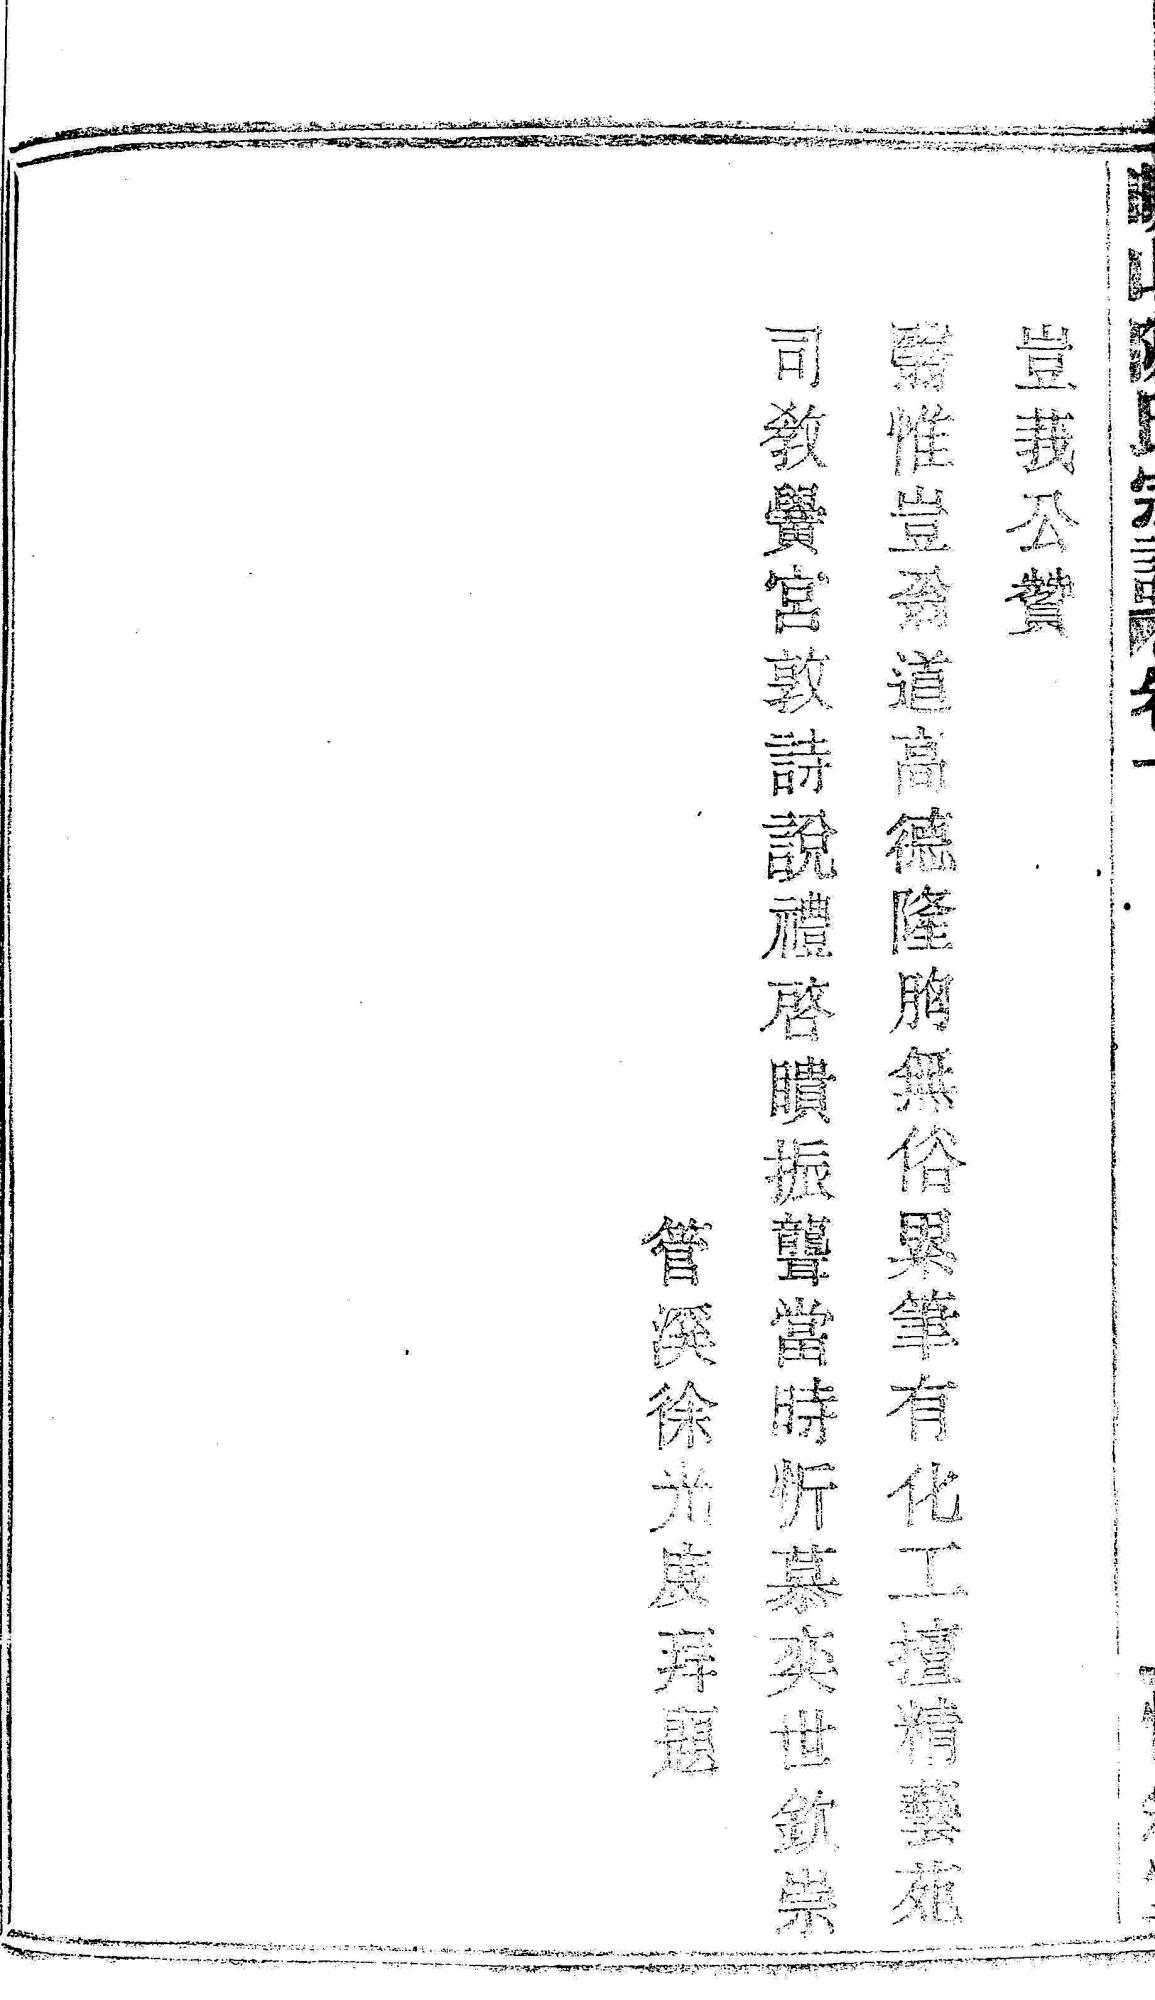 豈莪公贊
翳惟豈翁道高德隆胸無俗累筆有化工擅精藝苑
司敎黌宮敦詩說禮啓瞶振聾當時忻慕奕世欽崇
管溪徐光度拜題